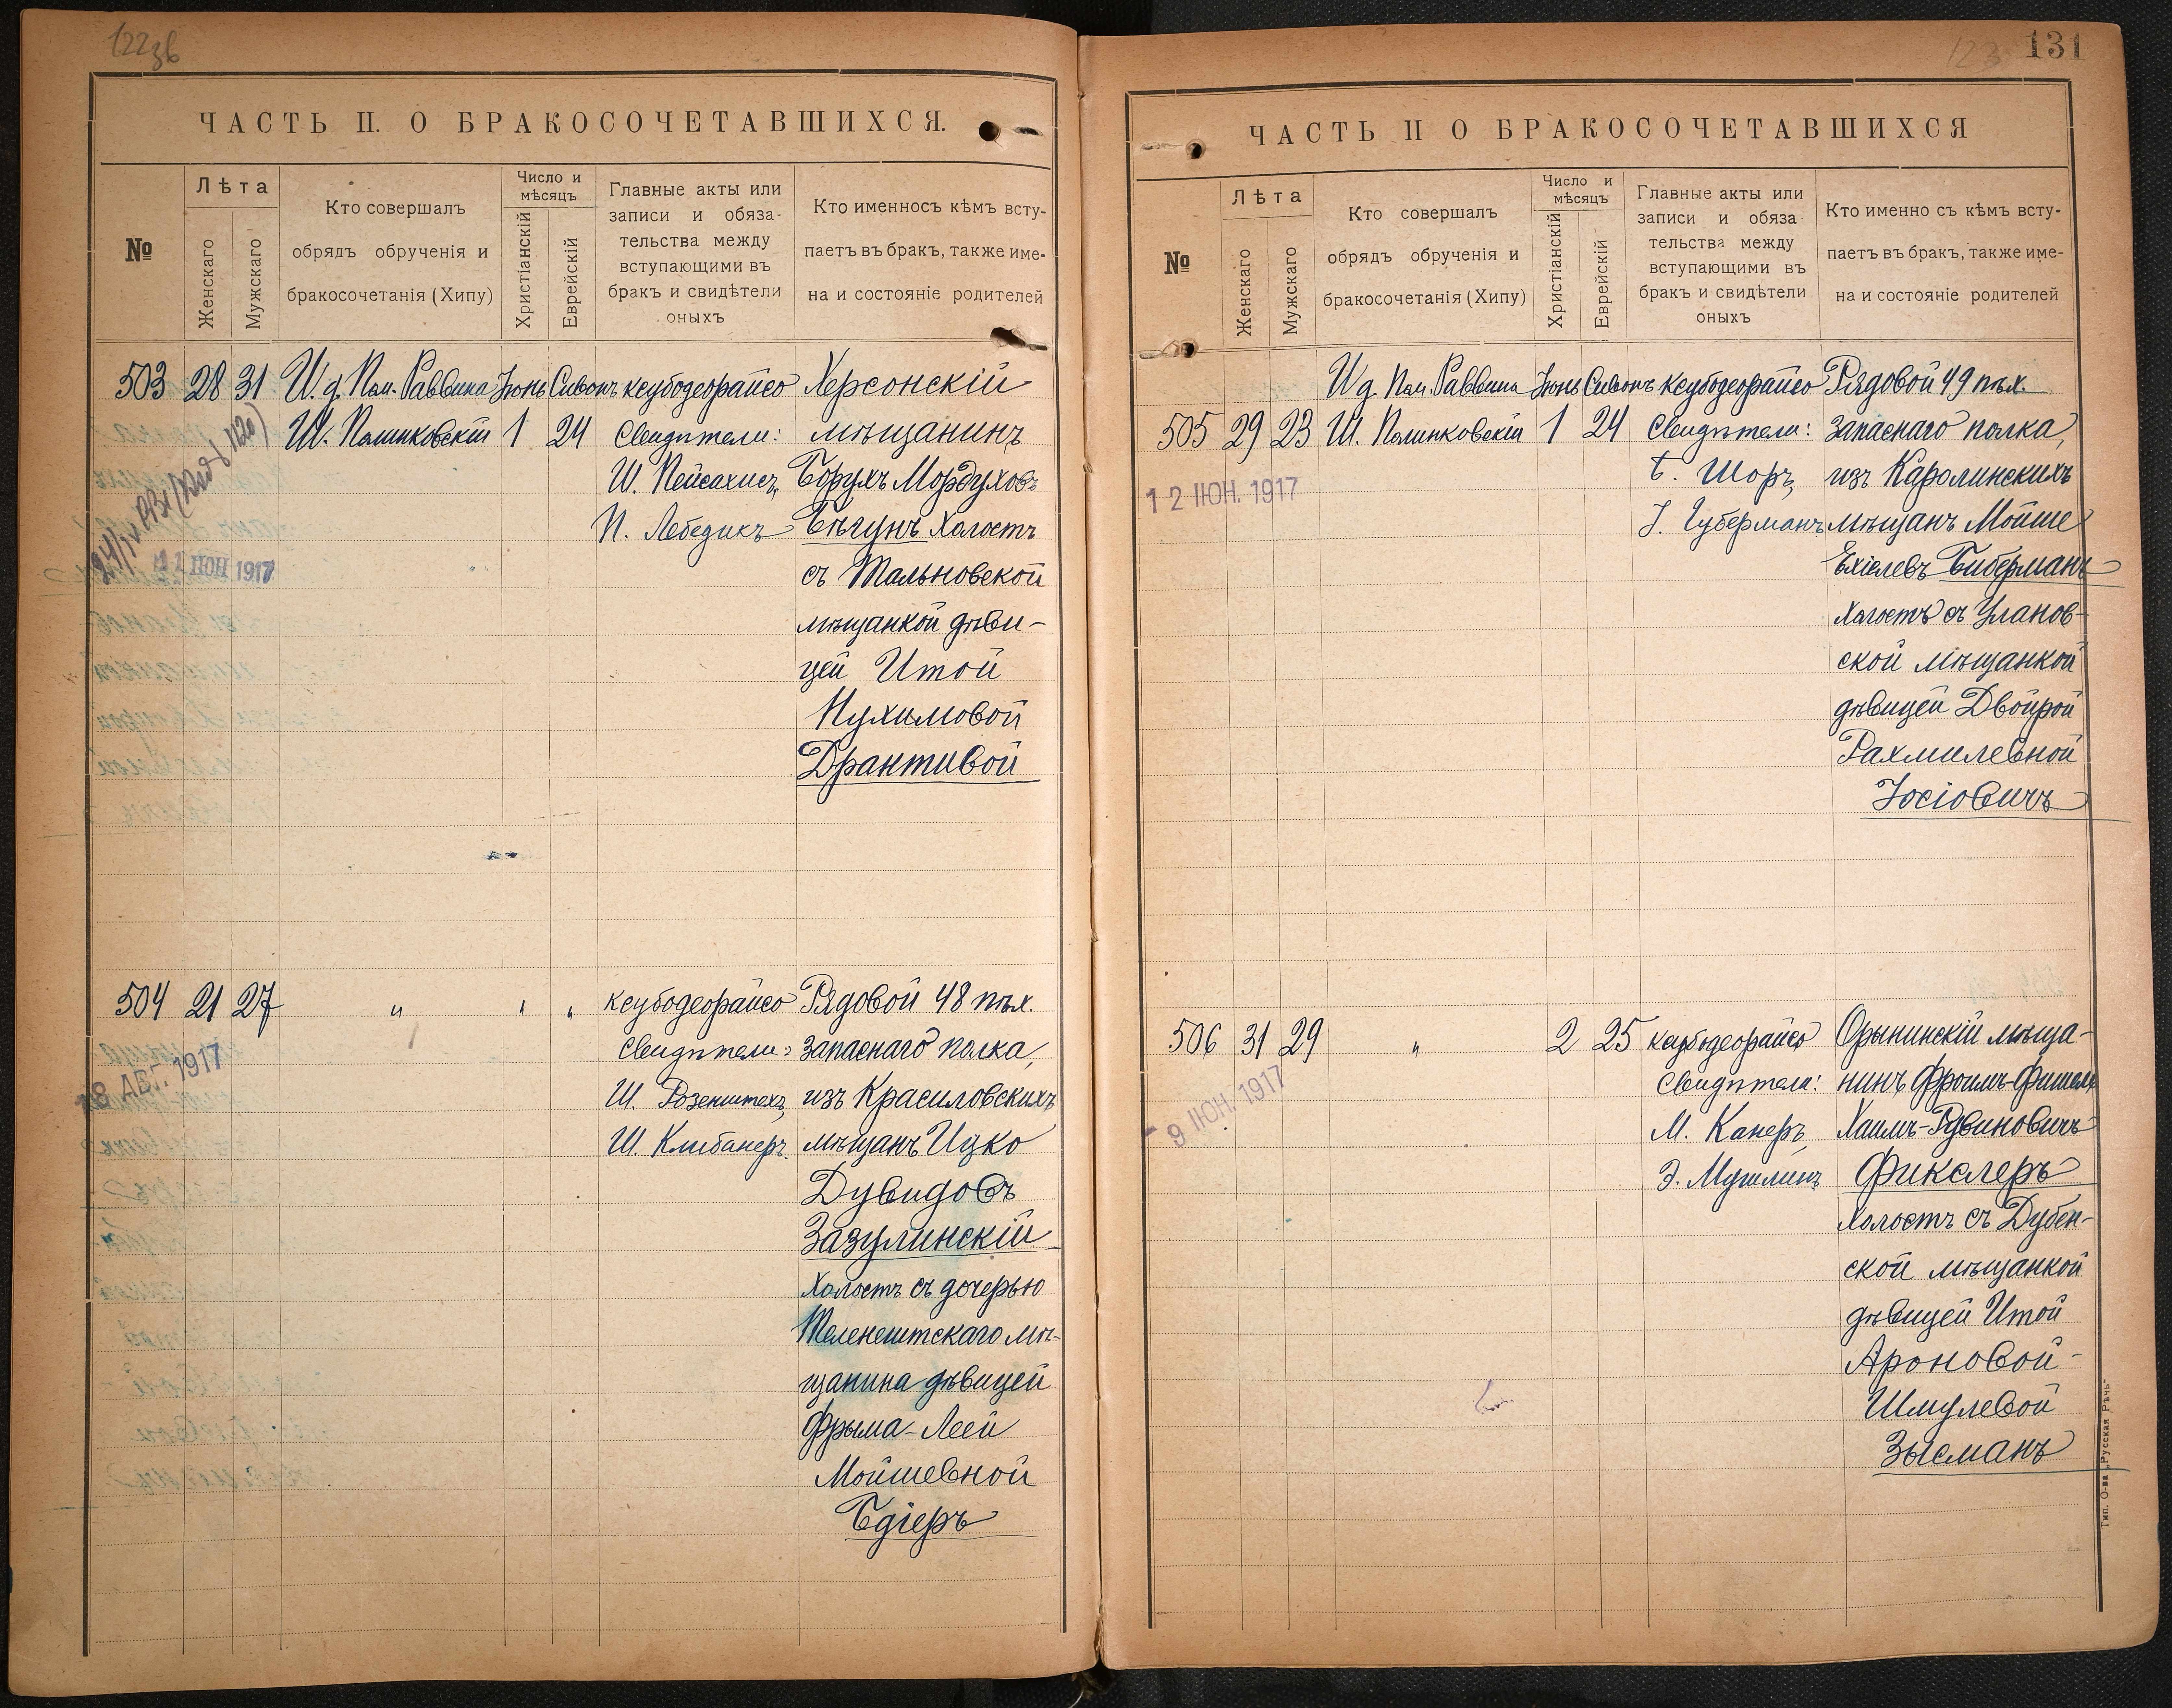 122зв
ЧАСТЬ II. О БРАКОСОЧЕТАВШИХСЯ.
№
Лѣта
Женскаго
Мужскаго
Кто совершалъ
обрядъ обрученія и
бракосочетанія (Хипу)
Число и
мѣсяцъ
Христіанскій
Еврейскій
Главные акты или
записи и обяза-
тельства между
вступающими въ
бракъ и свидѣтели
оныхъ
Кто именносъ кѣмъ всту-
паетъ въ бракъ, также име-
на и состояніе родителей
503 28 31 И. д. Пом. Раввина Іюнь Сивонъ ксубодеорайсо Херсонскій
Ш. Полинковскій 1 24 Свидѣтели: мѣщанинъ
Ш. Пейсахисъ, Борухъ Мордуховъ
П. Лебедикъ Бѣгунъ холостъ
11 ІЮН 1917
съ Тальновской
мѣщанкой дѣви-
цей Итой
Нухимовой
Драктивой
504 21 27 " " " ксубодеорайсо Рядовой 48 пѣх.
Свидѣтели: запаснаго полка,
18 АВГ. 1917
Ш. Розенштехъ, изъ Красиловскихъ
Ш. Клибанеръ. мѣщанъ Ицко
Дувидовъ
Зазулинскій
холостъ съ дочерью
Теленештскаго мѣ-
щанина дѣвицей
Фрыма-Леей
Мойшевной
Бдіеръ
123 131
ЧАСТЬ II О БРАКОСОЧЕТАВШИХСЯ
№
Лѣта
Женскаго
Мужскаго
Кто совершалъ
обрядъ обрученія и
бракосочетанія (Хипу)
Число и
мѣсяцъ
Христіанскій
Еврейскій
Главные акты или
записи и обяза
тельства между
вступающими въ
бракъ и свидѣтели
оныхъ
Кто именно съ кѣмъ всту-
паетъ въ бракъ, также име-
на и состояніе родителей
И д. Пом. Раввина Іюнь Сивонъ ксубодеорайсо Рядовой 49 пѣх.
505 29 23 Ш. Полинковскій 1 24 Свидѣтели: запаснаго полка,
12 ІЮН. 1917
Шоръ, изъ Каролинскихъ
Губерманъ мѣщанъ Мойше
Ехіелевъ Биберманъ
холостъ съ Уланов-
ской мѣщанкой
дѣвицей Двойрой
Рахмилевной
Іосіовичъ
506 31 29 " 2 25 ксубодеорайсо Орынинскій мѣща-
Свидѣтели: нинъ Фроимъ-Фишель
9 ІЮН. 1917
М. Канеръ, Хаимъ-Рувиновичъ
Э. Мушлинъ Фикслеръ
холостъ съ Дубен-
ской мѣщанкой
дѣвицей Итой
Ароновой-
Шмулевой
Зысманъ
Тип. О-ва „Русская Рѣчь"